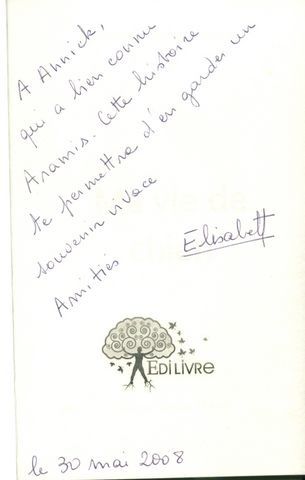 A Annick,
qui a bien connu
Aramis. Cette histoire
te permettra d'en garder un
souvenir vivace
Amitiés
Elisabett
Ma vie de
chien
EDILIVRE
le 30 mai 2008